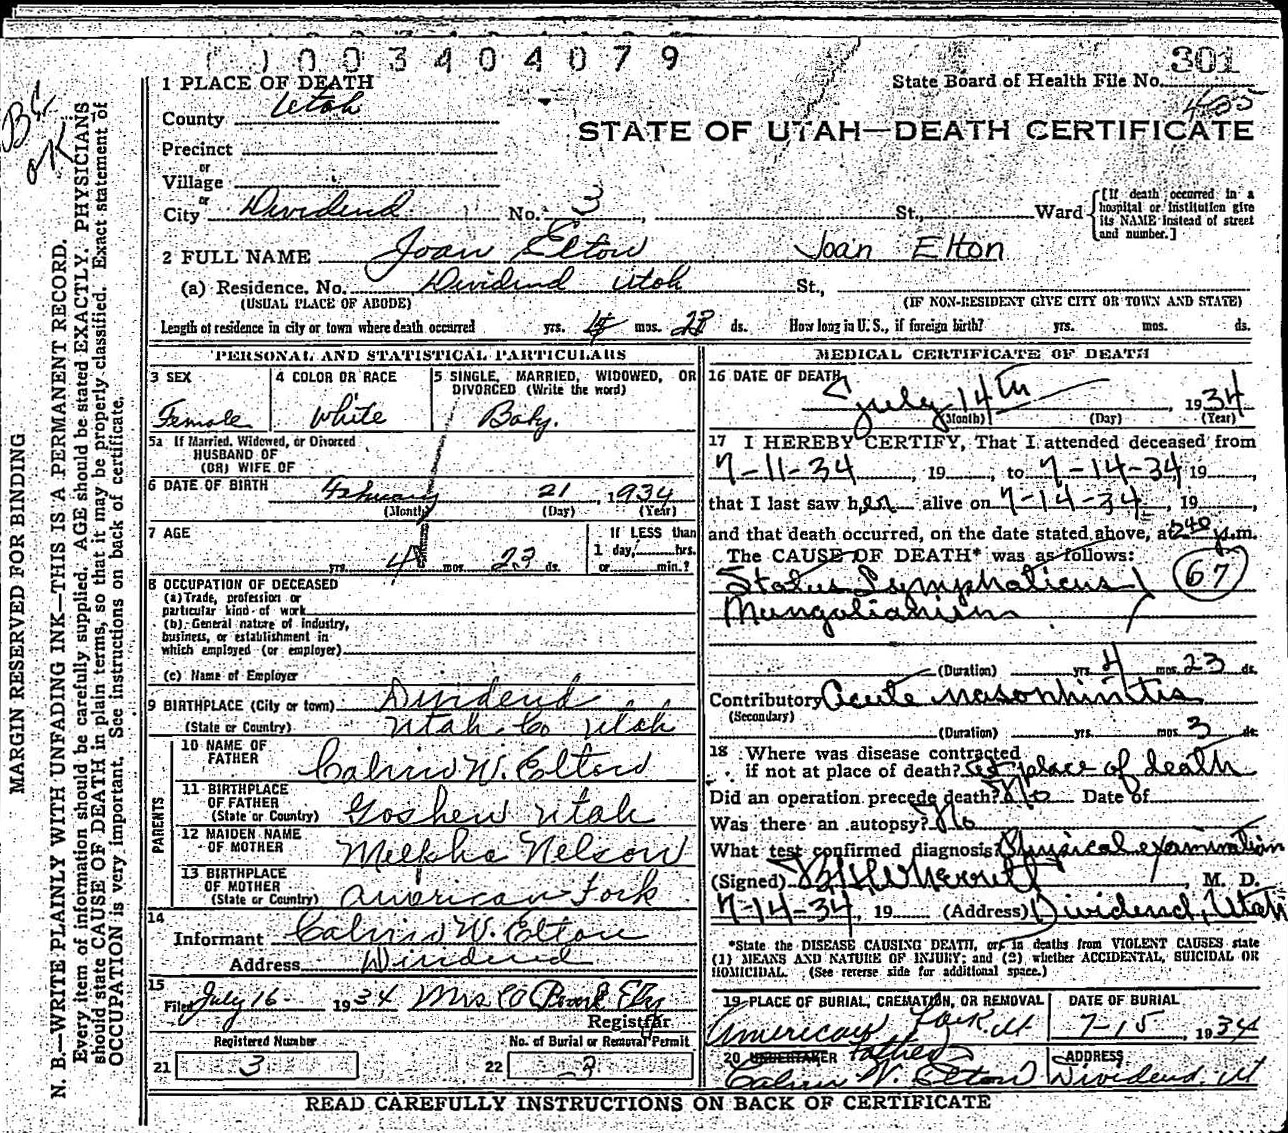 0 0 3 4 0 4 0 7 9
301
State Board of Health File No.
455
1 PLACE OF DEATH
County Utah
STATE OF UTAH—DEATH CERTIFICATE
Precinct
or
Village
or
City Dividend No. 3, St., Ward [If death occurred in a hospital or institution give its NAME instead of street and number.]
2 FULL NAME Joan Elton Joan Elton
(a) Residence. No. Dividend Utah St.,
(USUAL PLACE OF ABODE) (IF NON-RESIDENT GIVE CITY OR TOWN AND STATE)
Length of residence in city or town where death occurred yrs. 4 mos. 23 ds. How long in U.S., if foreign birth? yrs. mos. ds.
PERSONAL AND STATISTICAL PARTICULARS
3 SEX
Female
4 COLOR OR RACE
White
5 SINGLE, MARRIED, WIDOWED, OR
DIVORCED (Write the word)
Baby.
5a If Married, Widowed, or Divorced
HUSBAND OF
(OR) WIFE OF
6 DATE OF BIRTH February 21, 1934
(Month) (Day) (Year)
7 AGE
yrs. 4 mos. 23 ds.
If LESS than
1 day, hrs.
or min.?
8 OCCUPATION OF DECEASED
(a) Trade, profession or
particular kind of work
(b) General nature of industry,
business, or establishment in
which employed (or employer)
(c) Name of Employer
9 BIRTHPLACE (City or town) Dividend
(State or Country) Utah Co Utah
PARENTS
10 NAME OF
FATHER Calvin W. Elton
11 BIRTHPLACE
OF FATHER
(State or Country) Goshen Utah
12 MAIDEN NAME
OF MOTHER Melpha Nelson
13 BIRTHPLACE
OF MOTHER
(State or Country) American Fork
14
Informant Calvin W. Elton
Address Dividend
15
Filed July 16 1934 Mrs
Registrar
Registered Number
21 3
No. of Burial or Removal Permit
22 3
MEDICAL CERTIFICATE OF DEATH
16 DATE OF DEATH
July 14th, 1934
(Month) (Day) (Year)
17 I HEREBY CERTIFY, That I attended deceased from
7-11-34, 19, to 7-14-34, 19,
that I last saw her alive on 7-14-34, 19,
and that death occurred, on the date stated above, at 240 p.m.
The CAUSE OF DEATH* was as follows:
Status Lymphaticus
67
Mungolianism
(Duration) yrs. 4 mos. 23 ds.
Contributory Acute nasorhinitis
(Secondary)
(Duration) yrs. mos. 3 ds.
18 Where was disease contracted
if not at place of death? at place of death
Did an operation precede death? No Date of
Was there an autopsy? No
What test confirmed diagnosis? Physical examination
(Signed) Merrill, M. D.
7-14-34, 19 (Address) Dividend, Utah
*State the DISEASE CAUSING DEATH, or, in deaths from VIOLENT CAUSES state
(1) MEANS AND NATURE OF INJURY; and (2) whether ACCIDENTAL, SUICIDAL OR
HOMICIDAL. (See reverse side for additional space.)
19 PLACE OF BURIAL, CREMATION, OR REMOVAL
American Fork. Ut
DATE OF BURIAL
7-15, 1934
20 UNDERTAKER Father
Calvin W. Elton
ADDRESS
Dividend. Ut
READ CAREFULLY INSTRUCTIONS ON BACK OF CERTIFICATE
OK
MARGIN RESERVED FOR BINDING
N. B.—WRITE PLAINLY WITH UNFADING INK—THIS IS A PERMANENT RECORD.
Every item of information should be carefully supplied. AGE should be stated EXACTLY. PHYSICIANS
should state CAUSE OF DEATH in plain terms, so that it may be properly classified. Exact statement of
OCCUPATION is very important. See instructions on back of certificate.